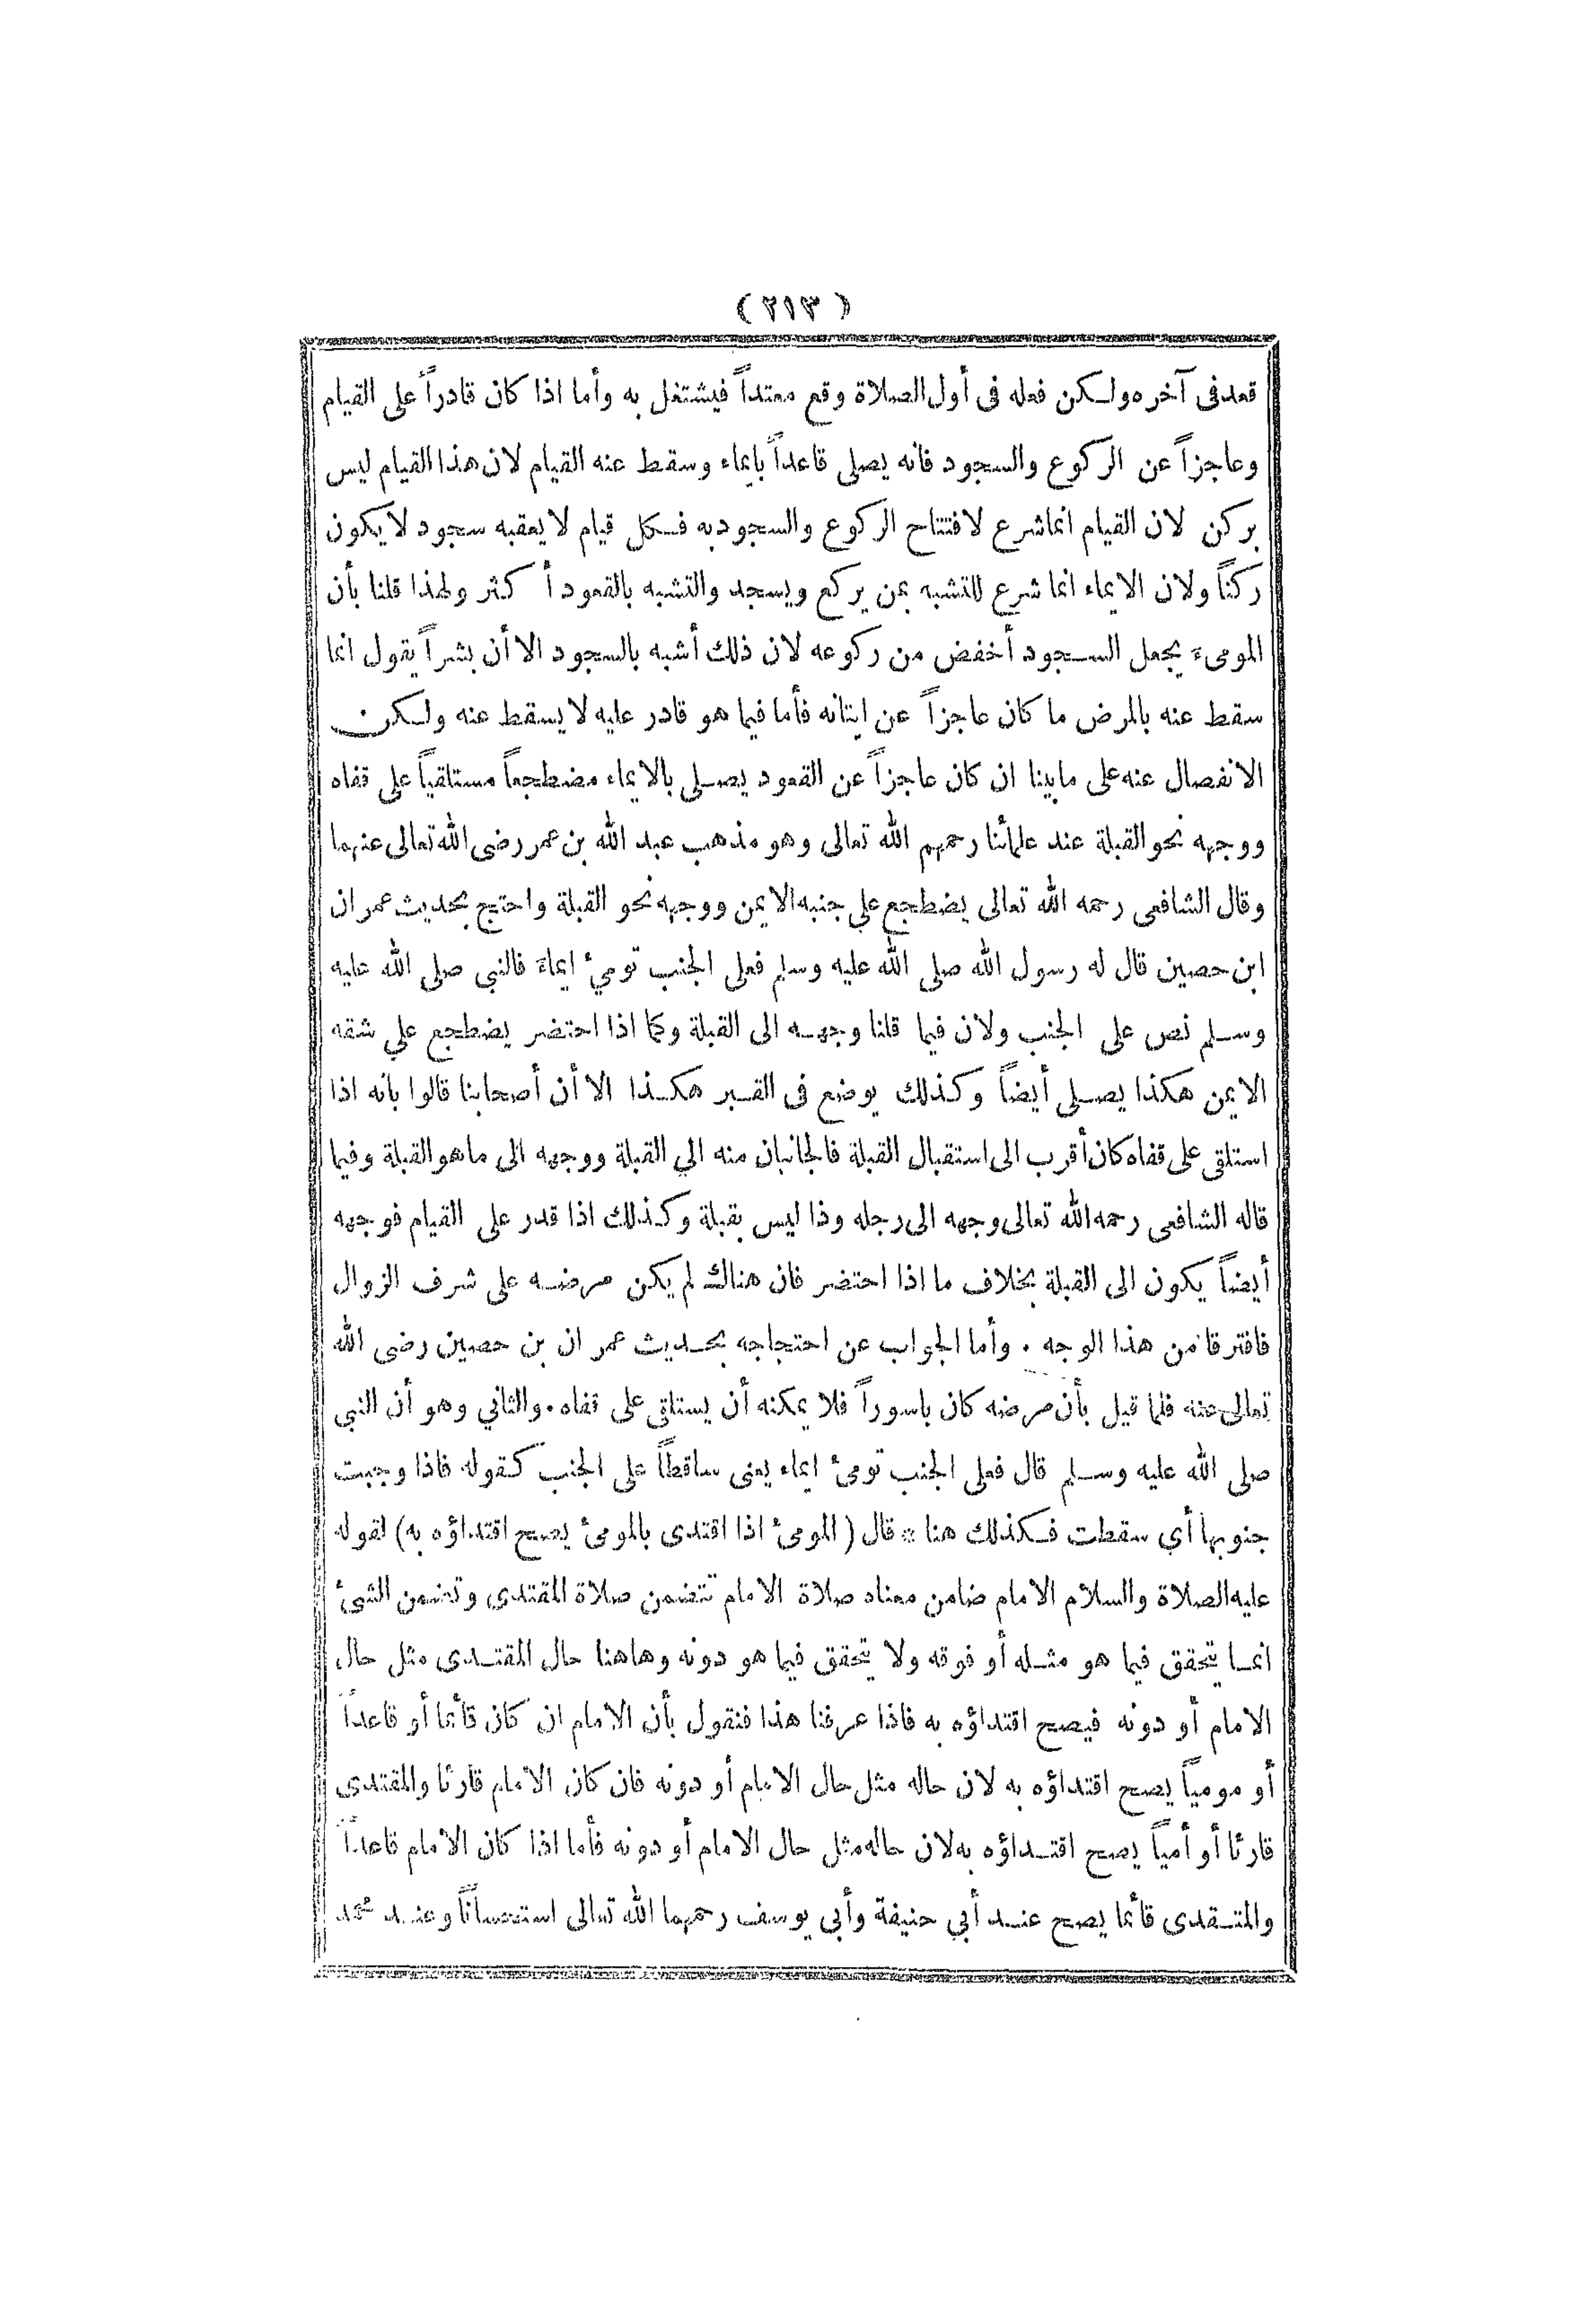 (٢١٣)
قعد فى آخره ولكن فعله فى أول الصلاة وقع معتداً فيشتغل به وأما اذا كان قادراً على القيام
وعاجزاً عن الركوع والسجود فانه يصلى قاعداً بايماء وسقط عنه القيام لان هذا القيام ليس
بركن لان القيام انما شرع لافتتاح الركوع والسجود به فكل قيام لا يعقبه سجود لا يكون
ركناً ولان الايماء انما شرع للتشبه بمن يركع ويسجد والتشبه بالقعود أكثر ولهذا قلنا بأن
المومىء يجعل السجود أخفض من ركوعه لان ذلك أشبه بالسجود الا أن بشراً يقول انما
سقط عنه بالمرض ما كان عاجزاً عن ايتانه فأما فيما هو قادر عليه لا يسقط عنه ولكن
الانفصال عنه على ما بينا ان كان عاجزاً عن القعود يصلى بالايماء مضطجعاً مستلقياً على قفاه
ووجهه نحو القبلة عند علمائنا رحمهم الله تعالى وهو مذهب عبد الله بن عمر رضى الله تعالى عنهما
وقال الشافعى رحمه الله تعالى يضطجع على جنبه الايمن ووجهه نحو القبلة واحتج بحديث عمران
ابن حصين قال له رسول الله صلى الله عليه وسلم فعلى الجنب تومئ ايماءً فالنبي صلى الله عليه
وسلم نص على الجنب ولان فيما قلنا وجهه الى القبلة وكما اذا احتضر يضطجع علي شقه
الايمن هكذا يصلى أيضاً وكذلك يوضع فى القبر هكذا الا أن أصحابنا قالوا بانه اذا
استلقى على قفاه كان أقرب الى استقبال القبلة فالجانبان منه الي القبلة ووجهه الى ما هو القبلة وفيما
قاله الشافعى رحمه الله تعالى وجهه الى رجله وذا ليس بقبلة وكذلك اذا قدر على القيام فوجهه
أيضاً يكون الى القبلة بخلاف ما اذا احتضر فان هناك لم يكن مرضه على شرف الزوال
فافترقا من هذا الوجه . وأما الجواب عن احتجاجه بحديث عمران بن حصين رضى الله
تعالى عنه فلما قيل بأن مرضه كان باسوراً فلا يمكنه أن يستلقى على قفاه . والثاني وهو أن النبي
صلى الله عليه وسلم قال فعلى الجنب تومئ ايماء يعنى ساقطاً على الجنب كقوله فاذا وجبت
جنوبها أي سقطت فكذلك هنا * قال (المومئ اذا اقتدى بالمومئ يصح اقتداؤه به) لقوله
عليه الصلاة والسلام الامام ضامن معناه صلاة الامام تتضمن صلاة المقتدى وتضمن الشئ
انما يتحقق فيما هو مثله أو فوقه ولا يتحقق فيما هو دونه وهاهنا حال المقتدى مثل حال
الامام أو دونه فيصح اقتداؤه به فاذا عرفنا هذا فنقول بأن الامام ان كان قائما أو قاعداً
أو مومياً يصح اقتداؤه به لان حاله مثل حال الامام أو دونه فان كان الامام قارئا والمقتدى
قارئا أو أمياً يصح اقتداؤه به لان حاله مثل حال الامام أو دونه فأما اذا كان الامام قاعداً
والمتقدى قائما يصح عند أبي حنيفة وأبى يوسف رحمهما الله تعالى استحساناً وعند محمد